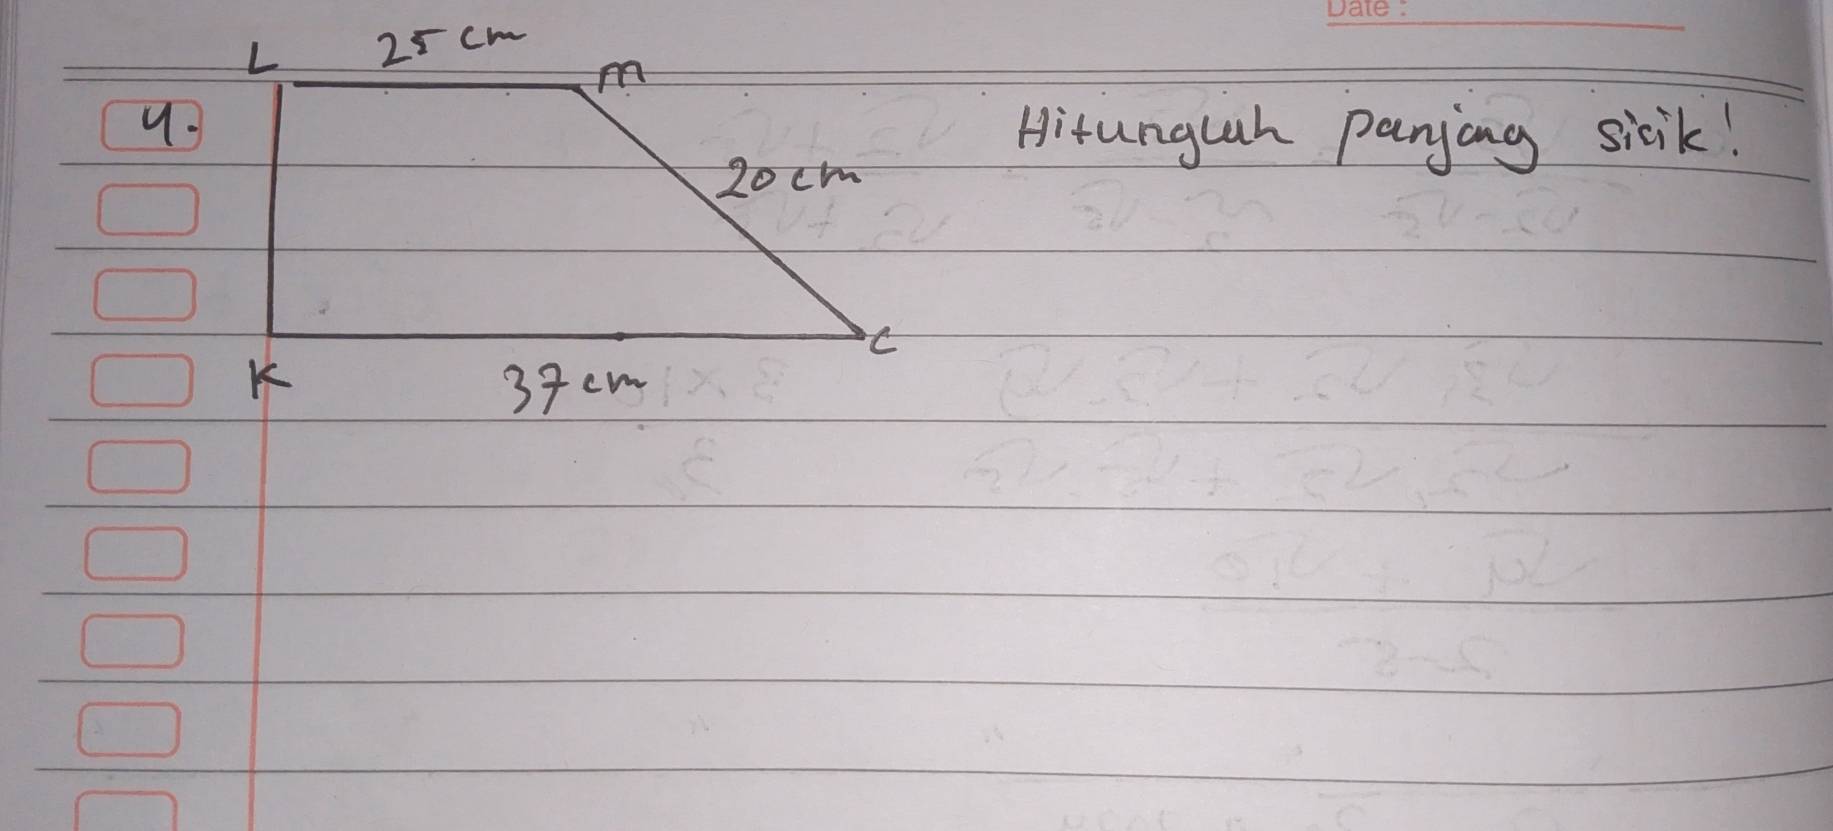 Date :
L 25 cm m
4. Hitunglah panjang sisik!
20 cm
C
K 37 cm